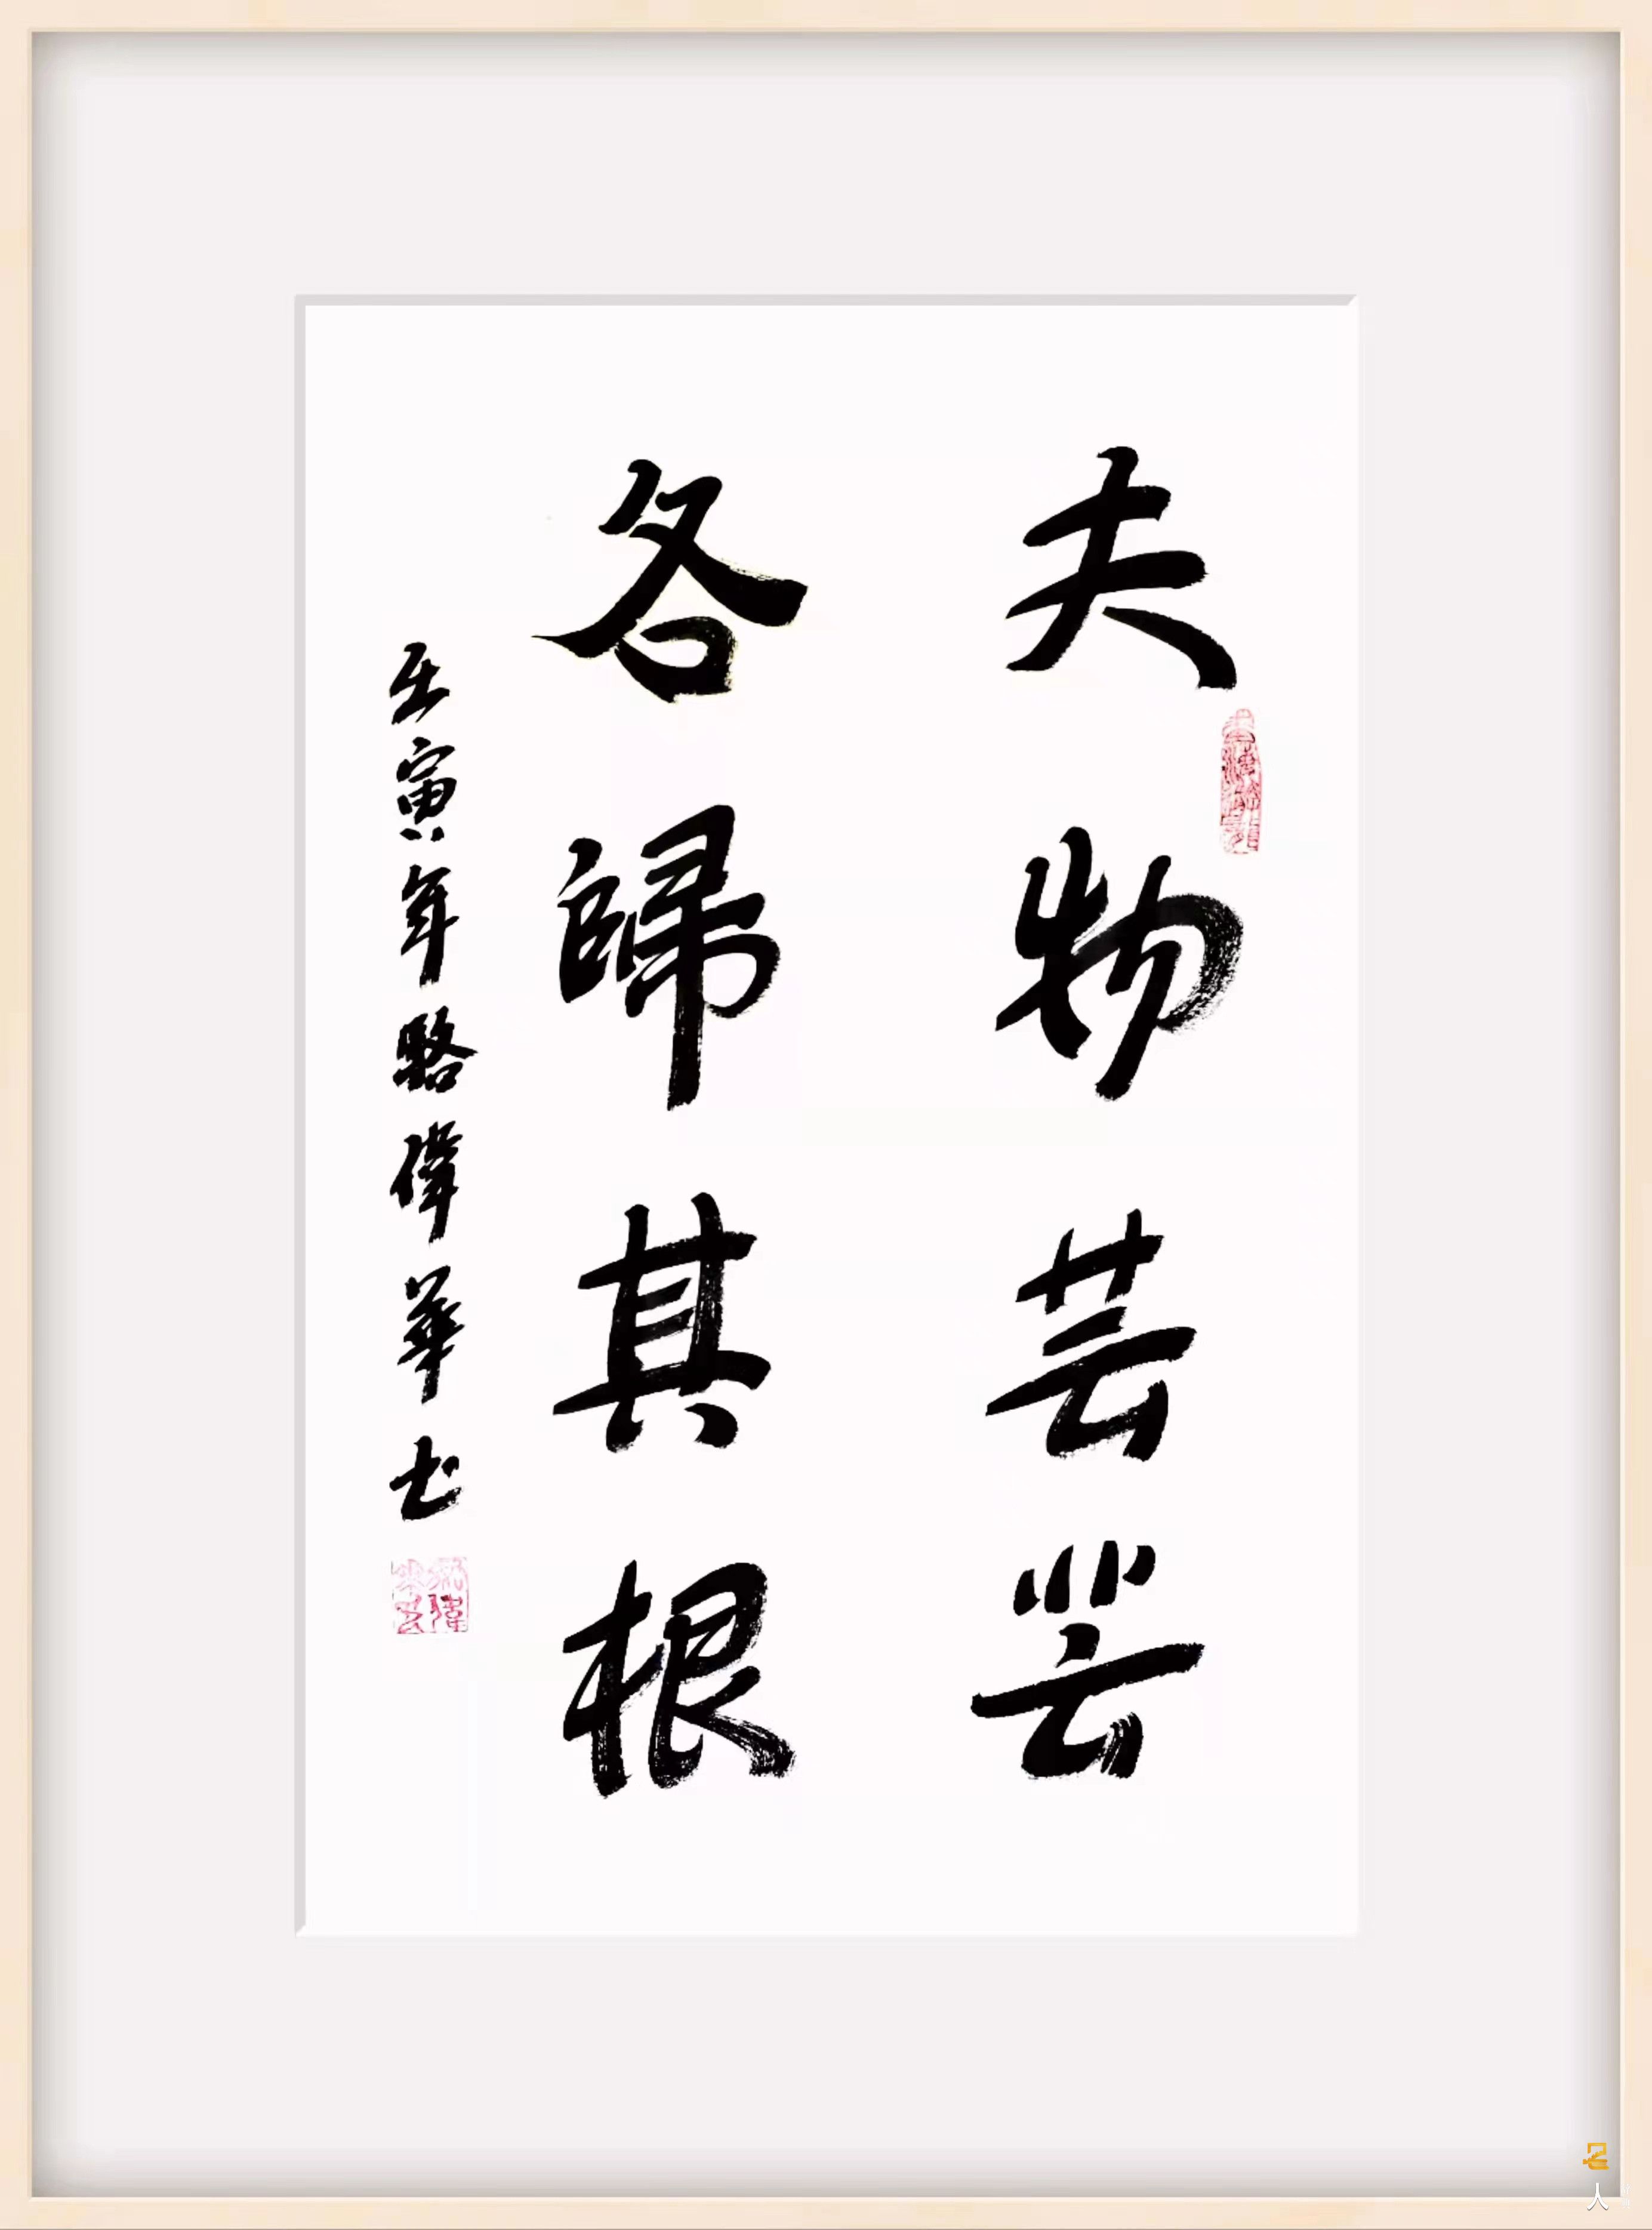 夫物芸芸
各歸其根
壬寅年駱偉華书
名人